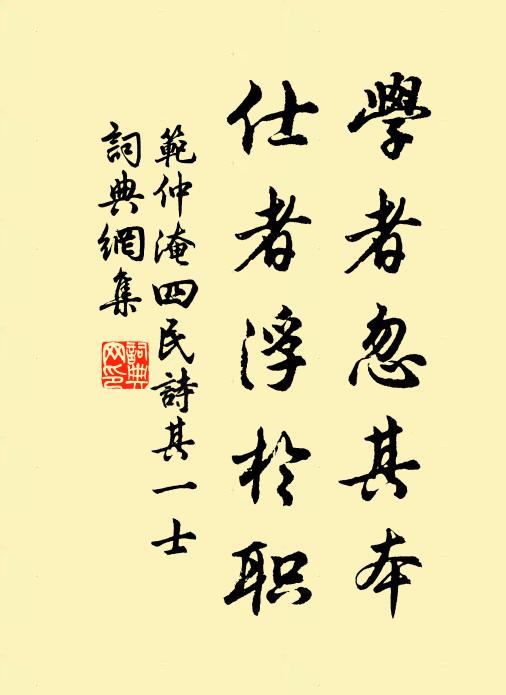 學者忽其本
仕者浮於职
範仲淹四民詩其一士
詞典網集
詞典网印